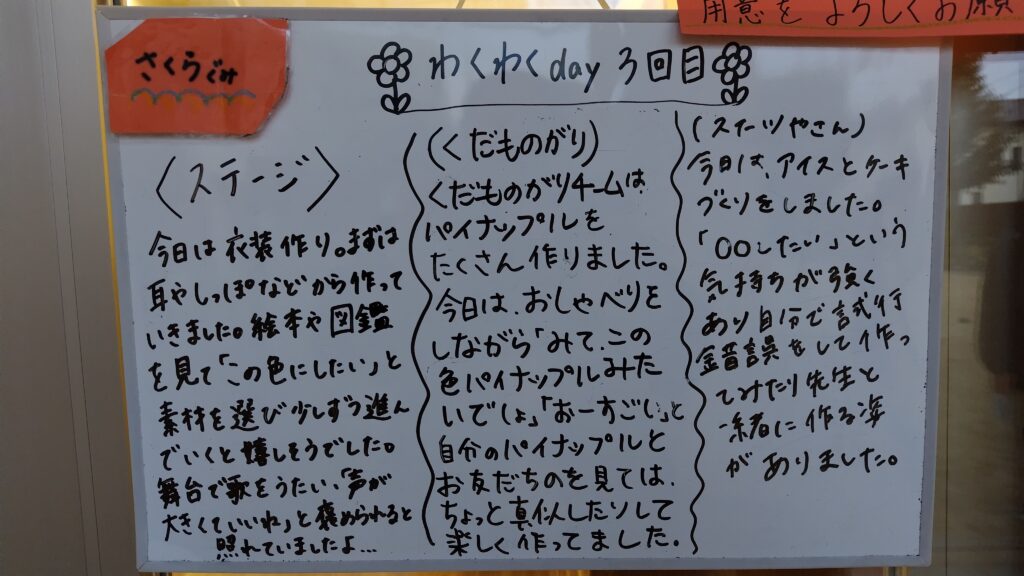 用意をよろしくお願
さくらぐみ
わくわくday 3回目
〈ステージ〉
今日は衣装作り。まずは
耳やしっぽなどから作って
いきました。絵本や図鑑
を見て「この色にしたい」と
素材を選び少しずつ進ん
でいくと嬉しそうでした。
舞台で歌をうたい、「声が
大きくていいね」と褒められると
照れていましたよ…
(くだものがり)
くだものがりチームは
パイナップルを
たくさん作りました。
今日は、おしゃべりを
しながら「みて、この
色パイナップルみた
いでしょ」「おーすごい」と
自分のパイナップルと
お友だちのを見ては、
ちょっと真似したりして
楽しく作ってました。
(スイーツやさん)
今日は、アイスとケーキ
づくりをしました。
「〇〇したい」という
気持ちが強く
あり自分で試行
錯誤をして作っ
てみたり先生と
一緒に作る姿
がありました。